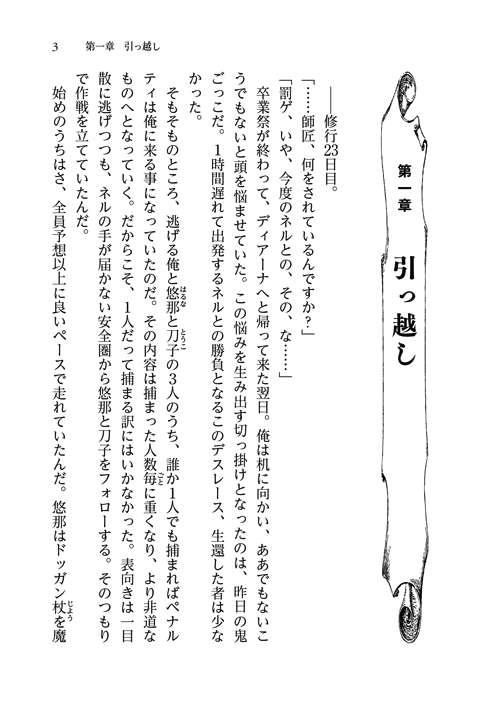 3　第一章　引っ越し
第一章
引っ越し
――修行23日目。
「……師匠、何をされているんですか？」
「罰ゲ、いや、今度のネルとの、その、な……」
卒業祭が終わって、ディアーナへと帰って来た翌日。俺は机に向かい、ああでもないこ
うでもないと頭を悩ませていた。この悩みを生み出す切っ掛けとなったのは、昨日の鬼
ごっこだ。1時間遅れて出発するネルとの勝負となるこのデスレース、生還した者は少な
かった。
そもそものところ、逃げる俺と悠那と刀子の3人のうち、誰か1人でも捕まればペナル
ティは俺に来る事になっていたのだ。その内容は捕まった人数毎に重くなり、より非道な
ものへとなっていく。だからこそ、1人だって捕まる訳にはいかなかった。表向きは一目
散に逃げつつも、ネルの手が届かない安全圏から悠那と刀子をフォローする。そのつもり
で作戦を立てていたんだ。
始めのうちはさ、全員予想以上に良いペースで走れていたんだ。悠那はドッガン杖を魔